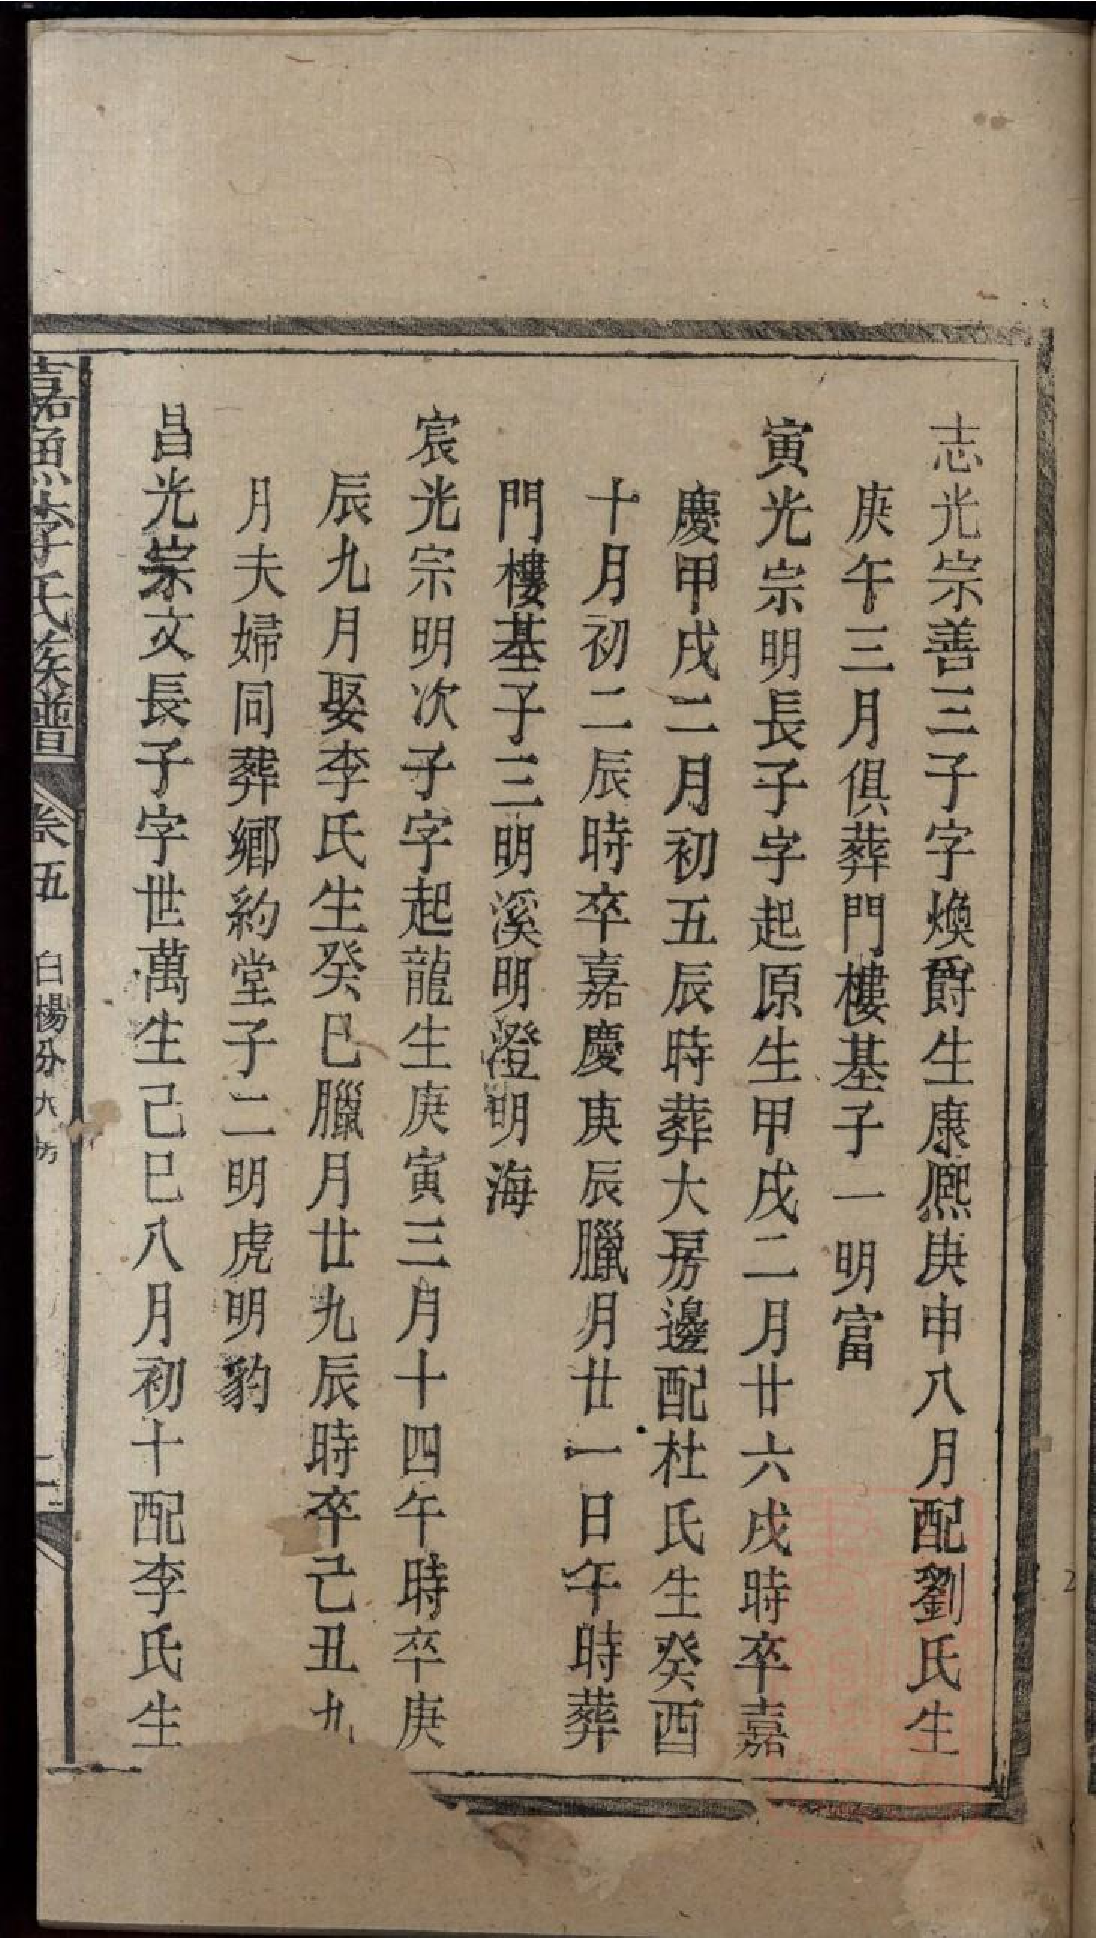 志光宗善三子字煥爵生康熈庚申八月配劉氏生
庚午三月俱葬門樓基子一明富
寅光宗明長子字起原生甲戌二月廿六戌時卒嘉
慶甲戌二月初五辰時葬大房邊配杜氏生癸酉
十月初二辰時卒嘉慶庚辰臘月廿一日午時葬
門樓基子三明溪明澄明海
宸光宗明次子字起龍生庚寅三月十四午時卒庚
辰九月娶李氏生癸巳臘月廿九辰時卒己丑九
月夫婦同葬鄉約堂子二明虎明豹
昌光宗文長子字世萬生己巳八月初十配李氏生
嘉魚李氏族譜
卷五
白楊分大房
二
2